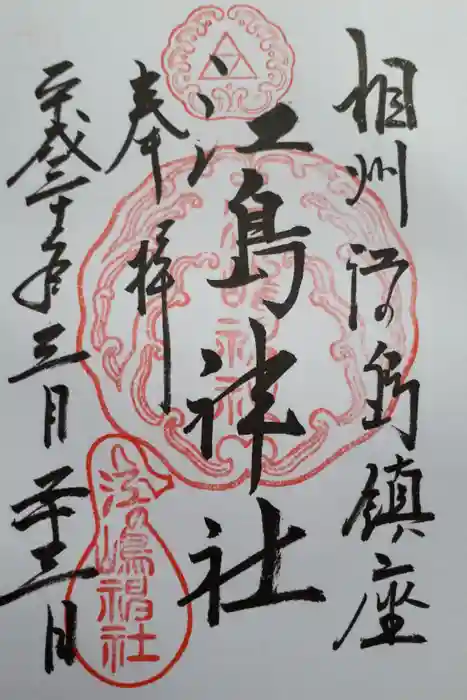 相州江の島鎮座
江島神社
奉拝
平成三十年三月廿三日
江の嶋神社